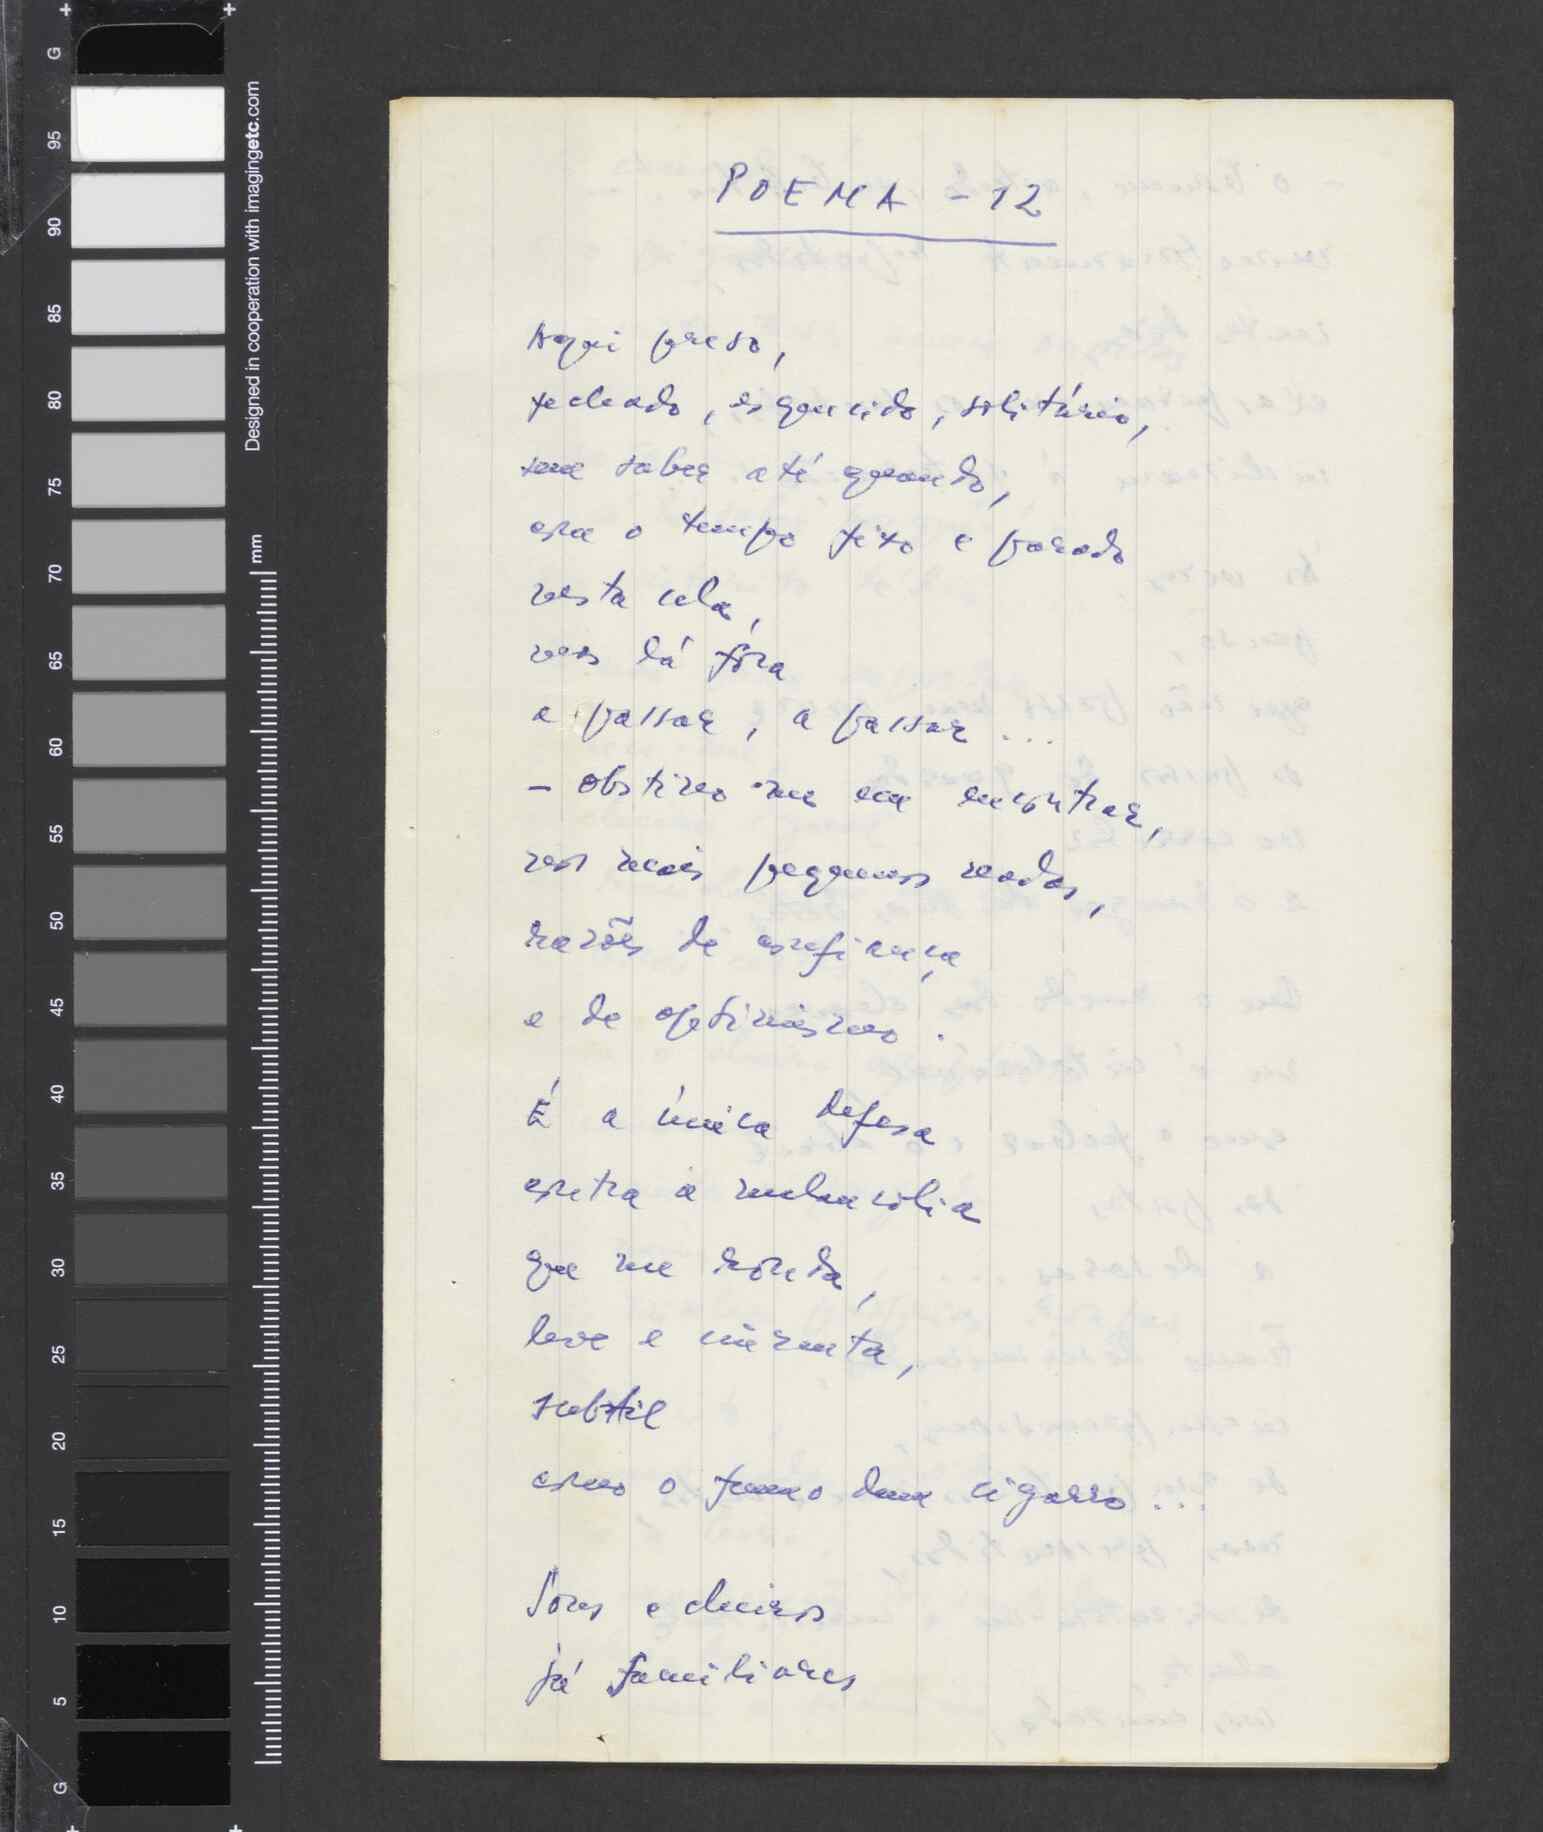 G
95
90
85
80
75
70
65
60
55
50
45
40
35
30
25
20
15
10
5
G
Designed in cooperation with imagingetc.com
mm
POEMA - 12
Aqui preso,
fechado, esquecido, solitário,
sem saber até quando,
com o tempo fixo e parado
nesta cela,
mas lá fóra
a passar, a passar...
- obstino-me em encontrar,
nos mais pequenos nadas,
razões de confiança
e de optimismo.
É a única defesa
contra a melancolia
que me ronda,
leve e cinzenta,
subtil
como o fumo dum cigarro...
Sons e cheiros
já familiares